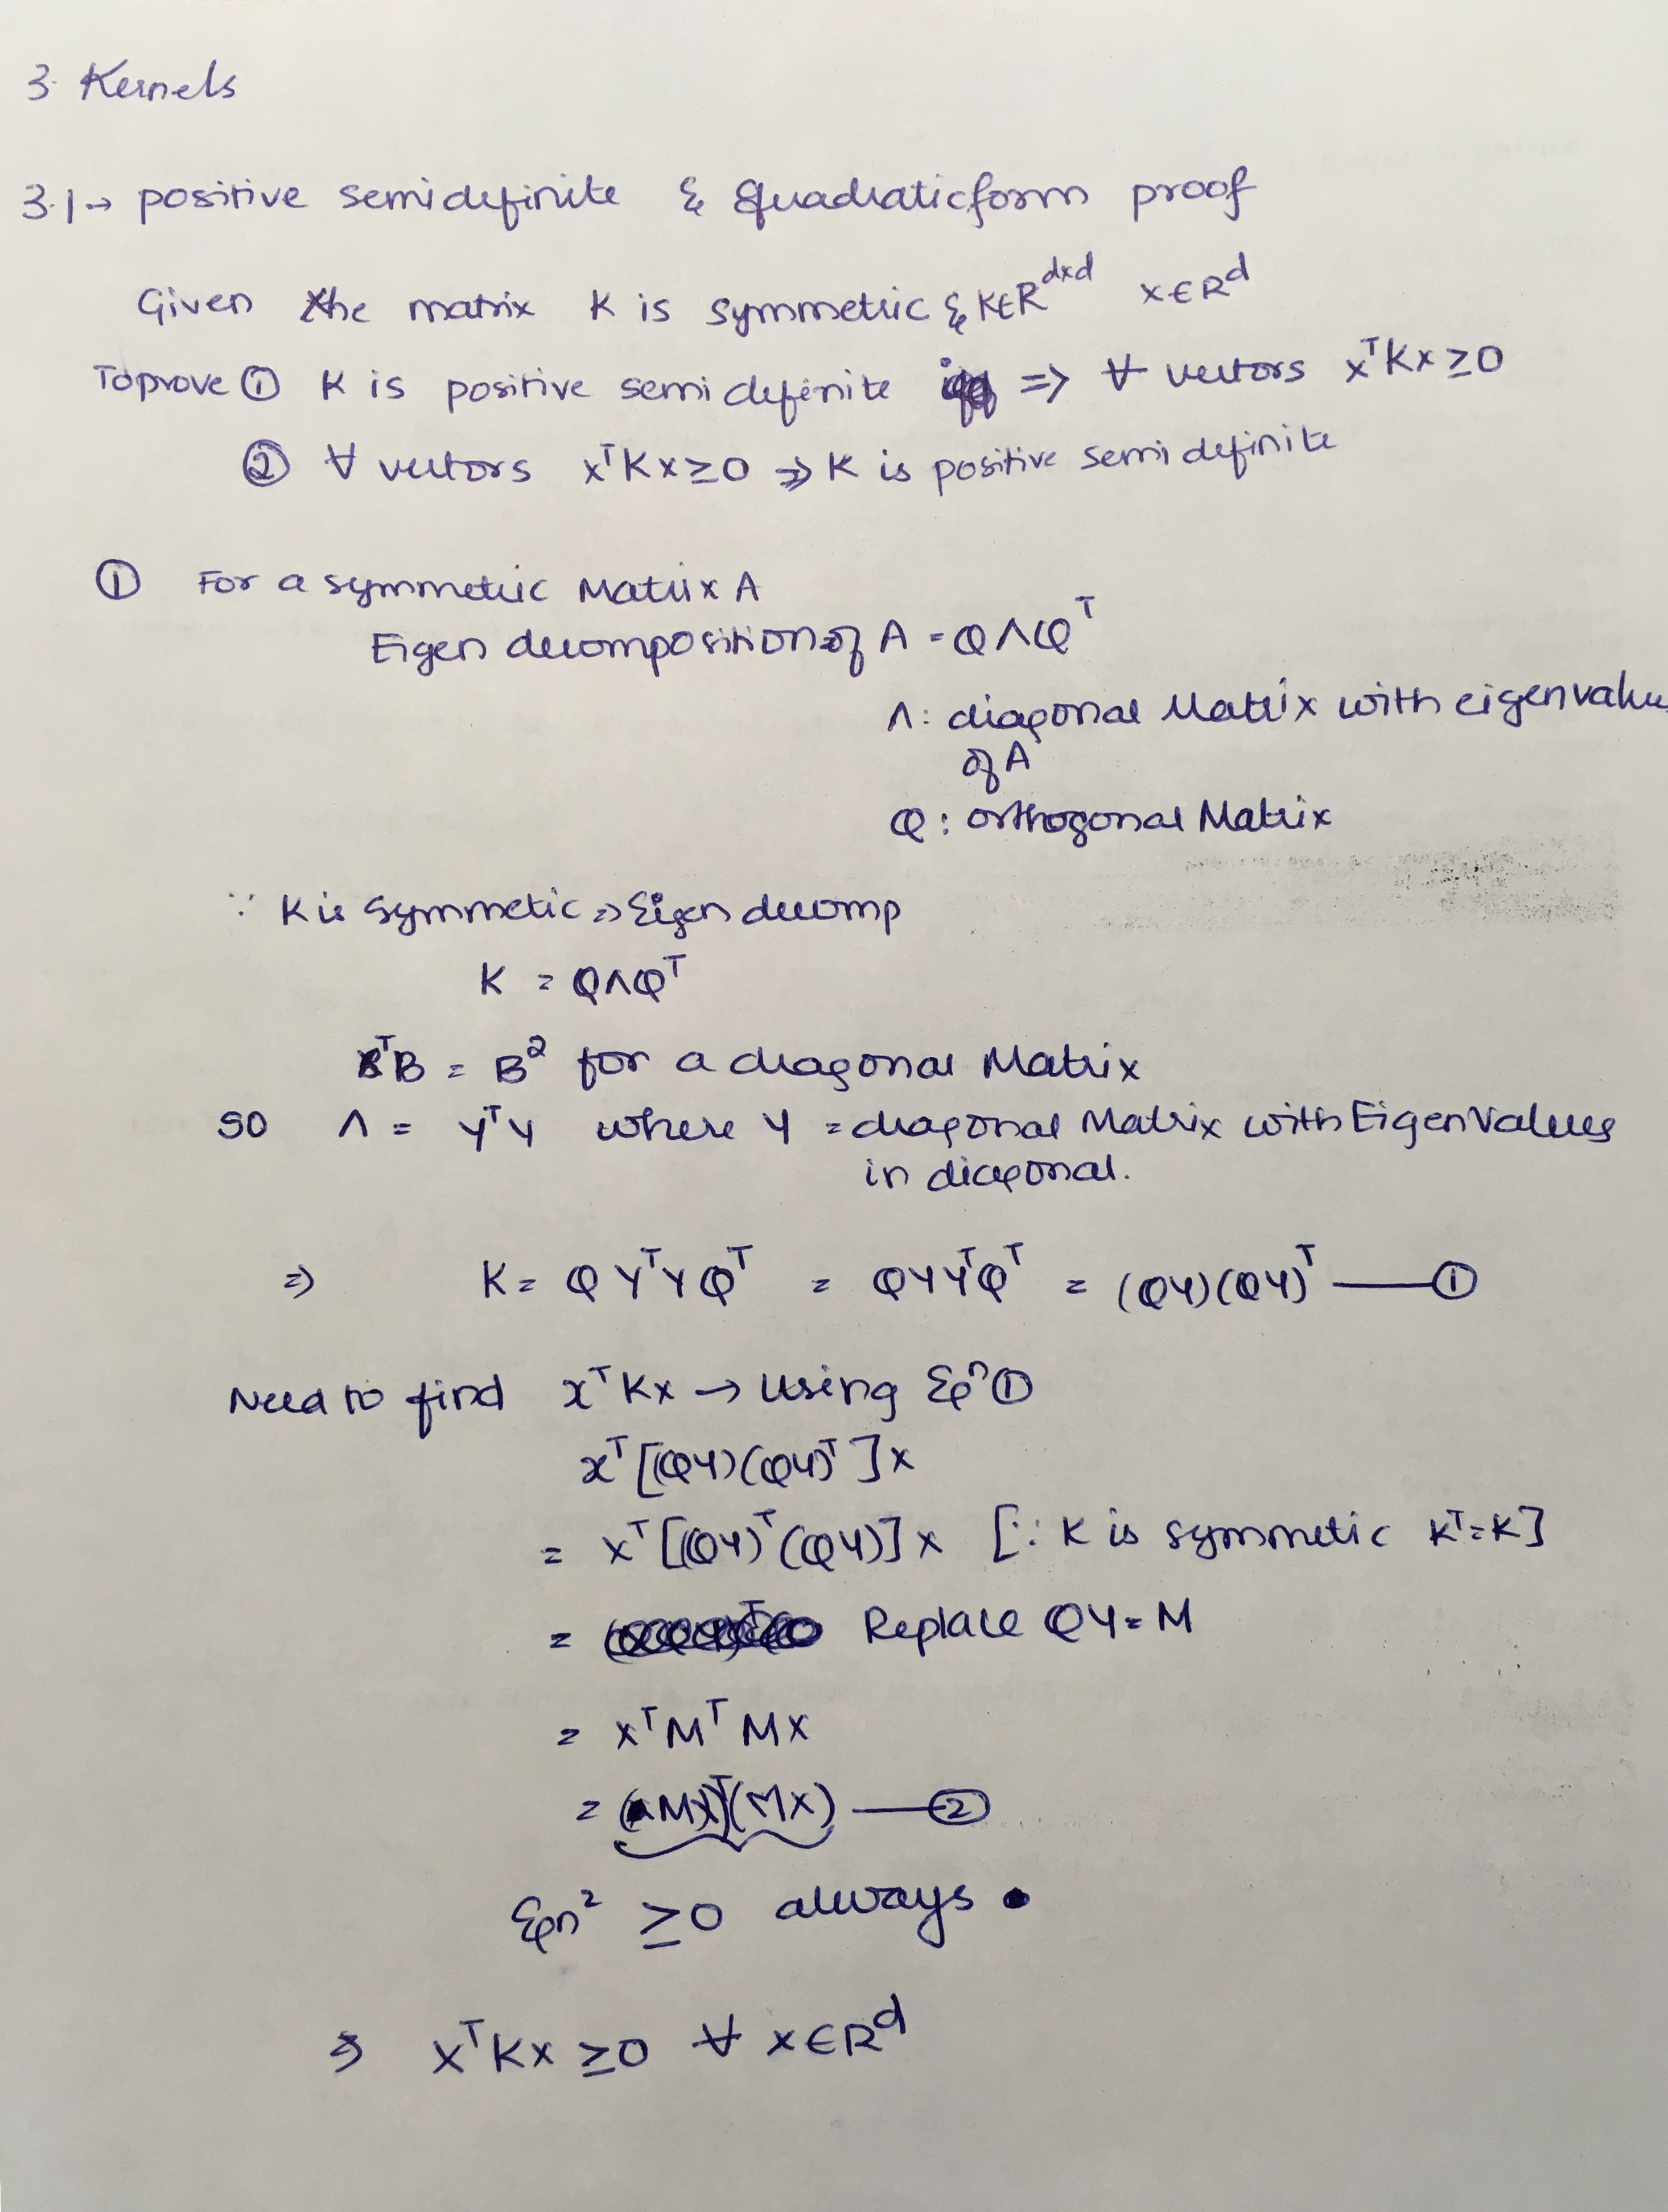 3. Kernels
3.1→ positive semidefinite & Quadraticform proof
Given the matrix K is symmetric & K∈R^{d×d} x∈R^d
Toprove ① K is positive semidefinite => ∀ vectors x^T K x ≥ 0
② ∀ vectors x^T K x ≥ 0 => K is positive semidefinite
① For a symmetric Matrix A
Eigen decomposition of A = QΛQ^T
Λ: diagonal Matrix with eigenvalu
of A
Q: orthogonal Matrix
∵ K is symmetic => Eigen decomp
K = QΛQ^T
B^T B = B^2 for a diagonal Matrix
SO Λ = Y^T Y where Y = diagonal Matrix with EigenValues
in diagonal.
=> K = Q Y^T Y Q^T = Q Y Y^T Q^T = (QY)(QY)^T — ①
Need to find x^T K x → Using Eqn ①
x^T [(QY)(QY)^T] x
= x^T [(QY)^T (QY)] x [∵ K is symmetic K^T = K]
= Replace QY = M
= x^T M^T M x
= (Mx)^T (Mx) — ②
Eqn^2 ≥ 0 always
=> x^T K x ≥ 0 ∀ x∈R^d